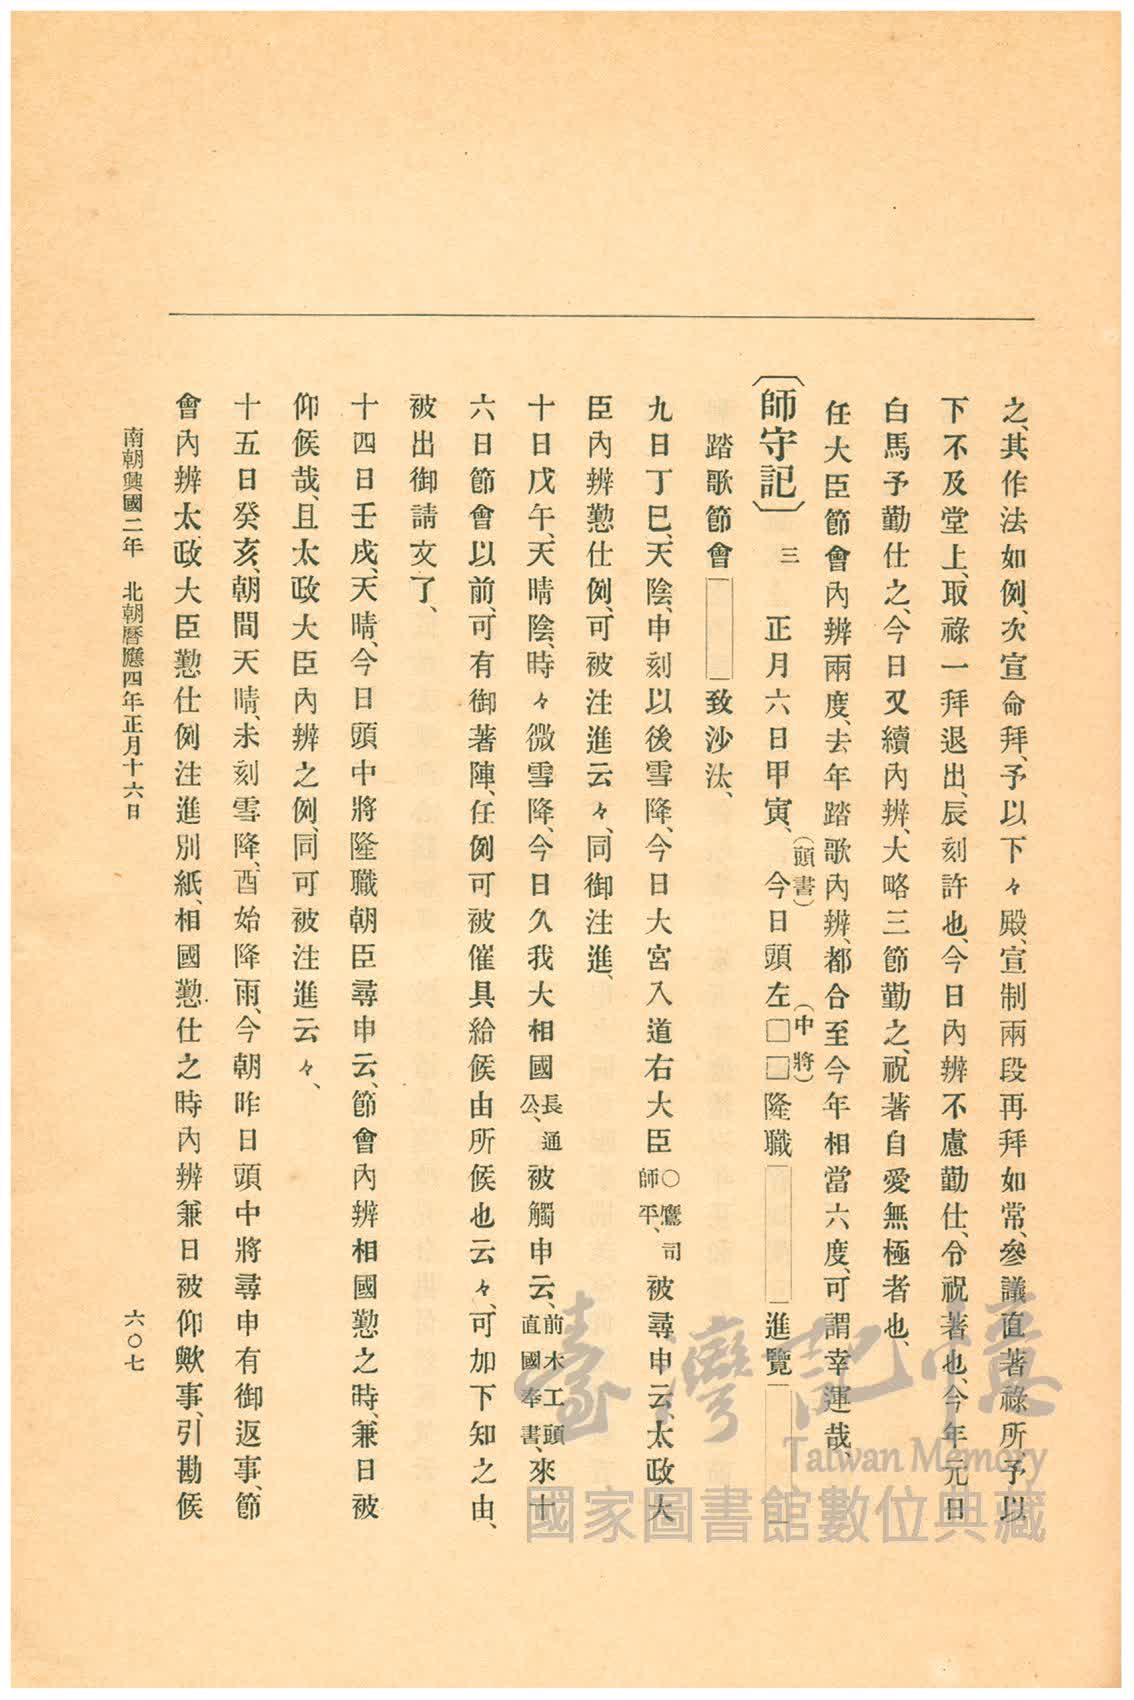 之、其作法如例、次宣命拜、予以下々殿、宣制兩段再拜如常、參議直著祿所、予以
下不及堂上、取祿一拜退出、辰刻許也、今日內辨不慮勤仕、令祝著也、今年元日
白馬予勤仕之、今日又續內辨、大略三節勤之、祝著自愛無極者也、
任大臣節會內辨兩度、去年踏歌內辨、都合至今年相當六度、可謂幸運哉、
〔師守記〕 三 正月六日甲寅、(頭書)今日頭左□□(中將)隆職 進覽
踏歌節會 致沙汰、
九日丁巳、天陰、申刻以後雪降、今日大宮入道右大臣○鷹司師平、被尋申云、太政大
臣內辨懃仕例、可被注進云々、同御注進、
十日戊午、天晴陰、時々微雪降、今日久我大相國長通公、被觸申云、前木工頭直國奉書、來十
六日節會以前、可有御著陣、任例可被催具給候由所候也云々、可加下知之由、
被出御請文了、
十四日壬戌、天晴、今日頭中將隆職朝臣尋申云、節會內辨相國懃之時、兼日被
仰候哉、且太政大臣內辨之例、同可被注進云々、
十五日癸亥、朝間天晴、未刻雪降、酉始降雨、今朝昨日頭中將尋申有御返事、節
會內辨太政大臣懃仕例注進別紙、相國懃仕之時內辨兼日被仰歟事、引勘候
南朝興國二年 北朝曆應四年正月十六日
六〇七
臺灣記憶
Taiwan Memory
國家圖書館數位典藏